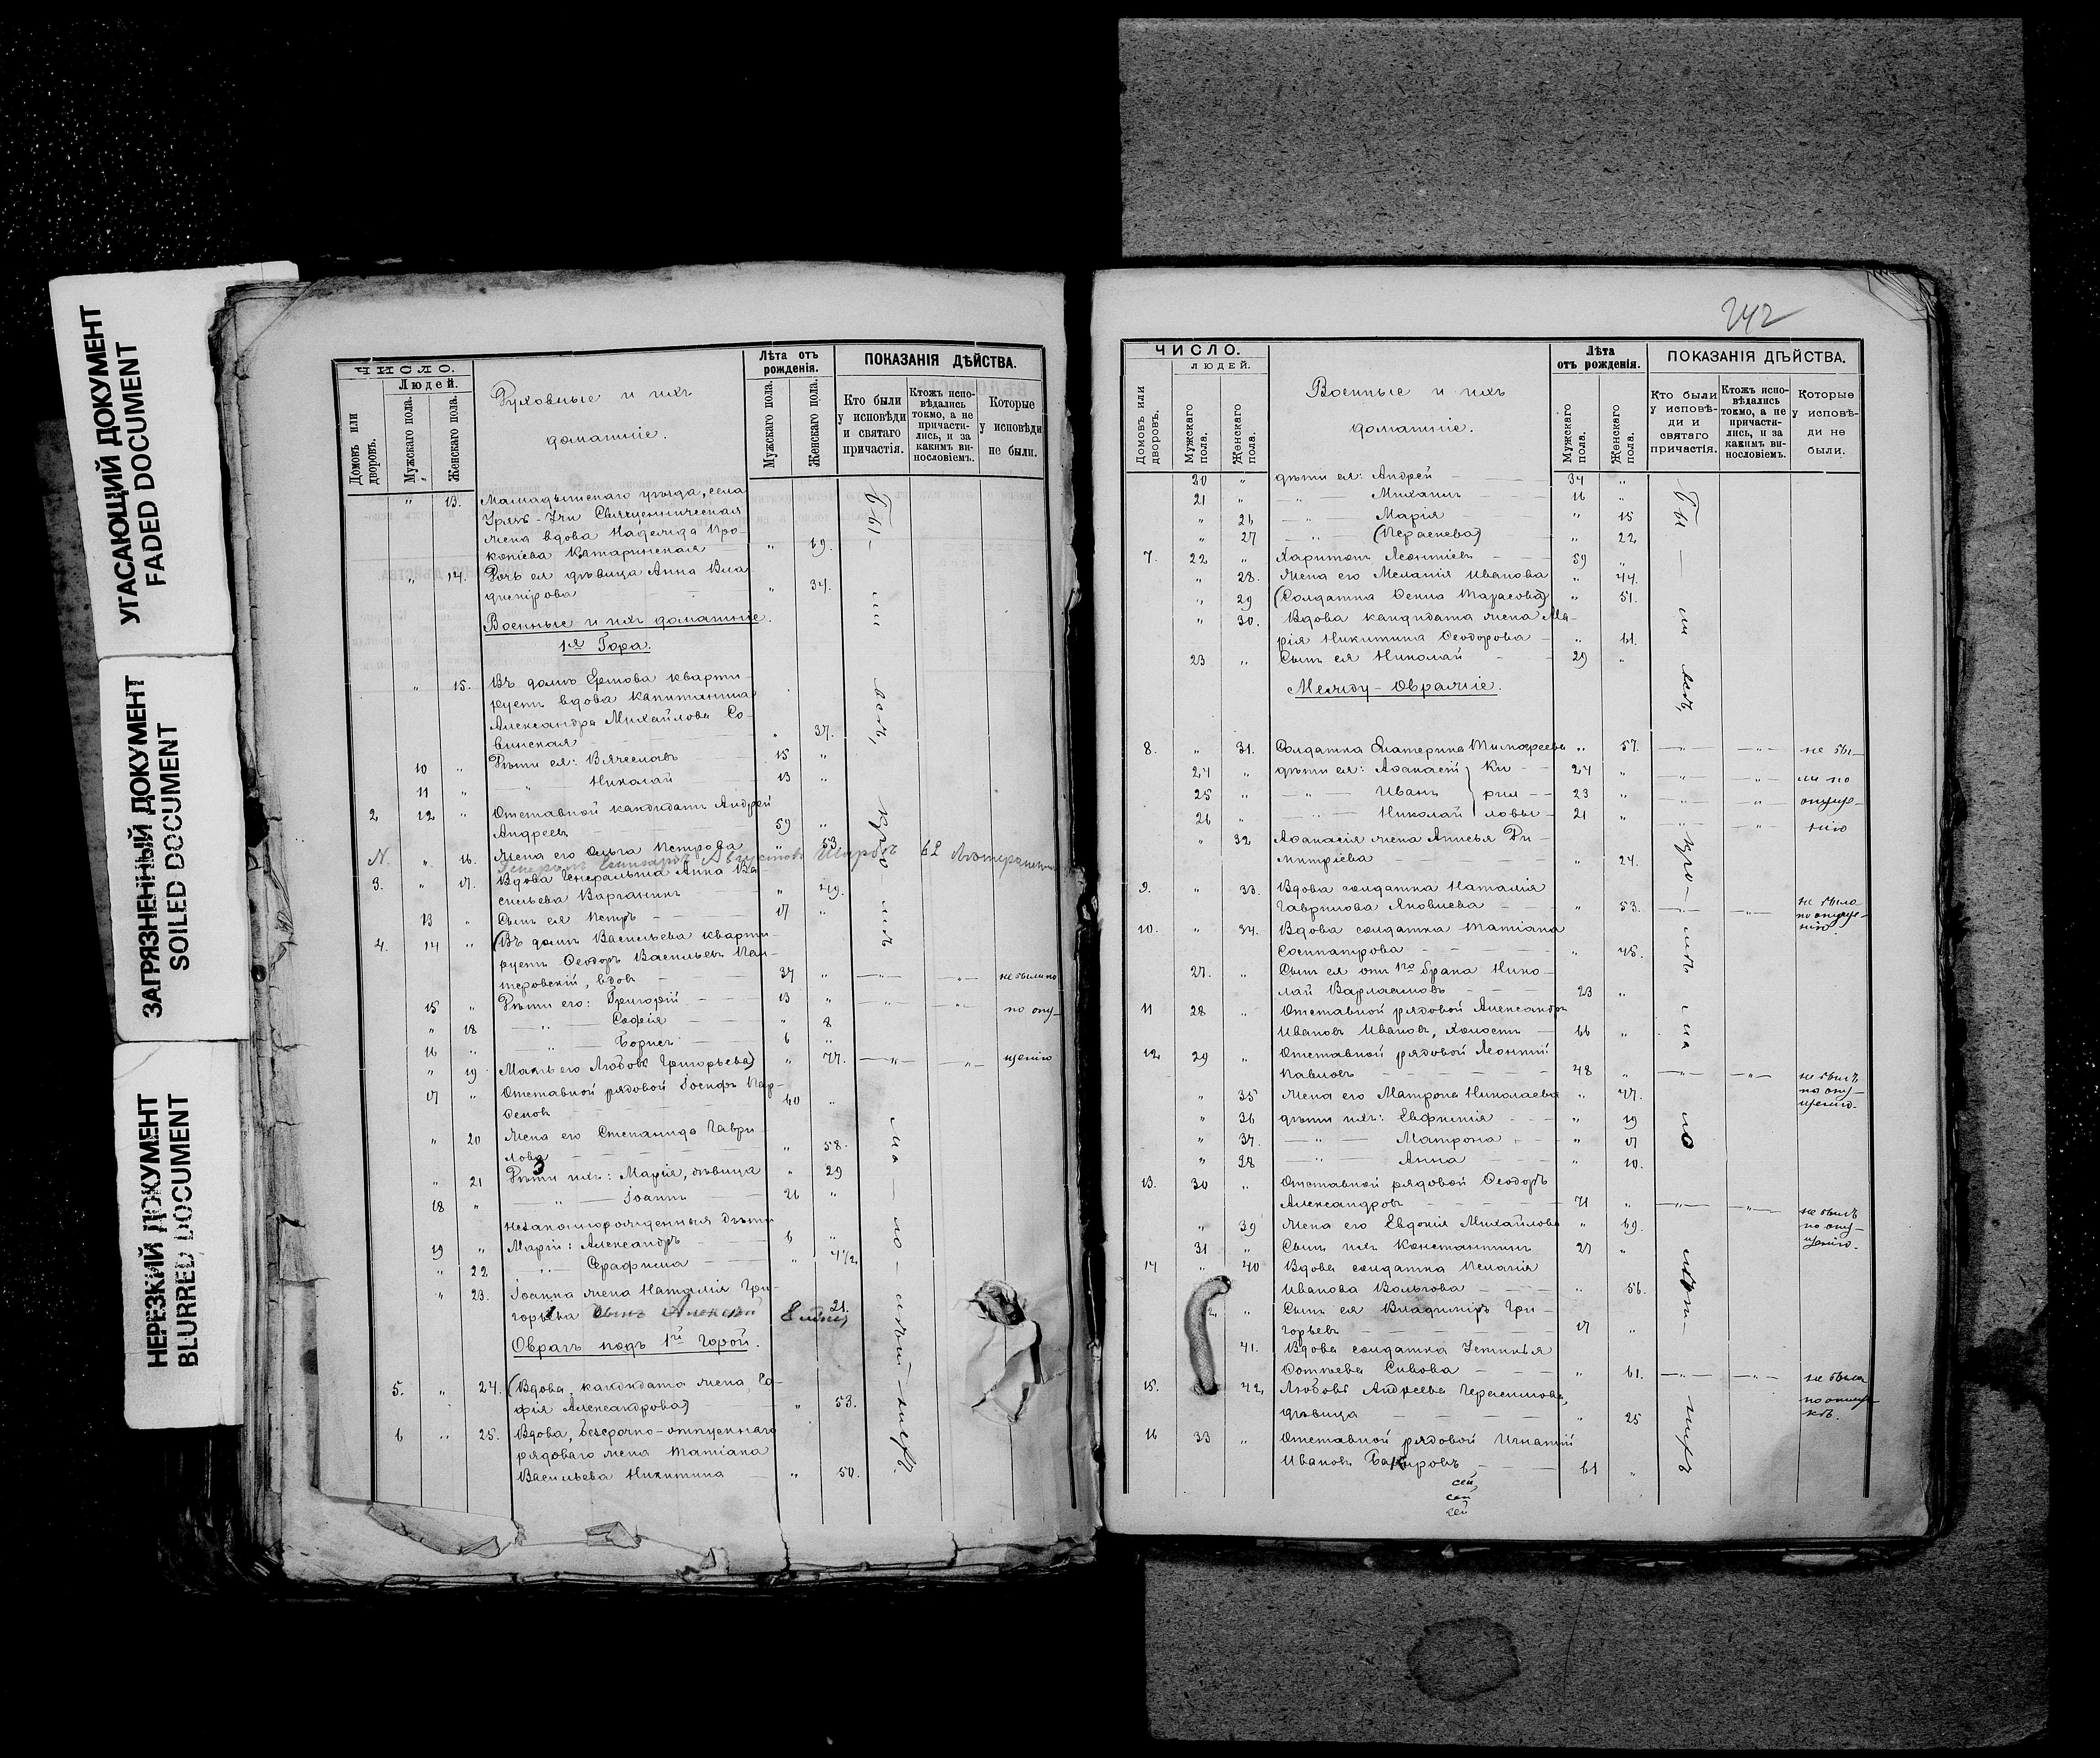 УГАСАЮЩИЙ ДОКУМЕНТ
FADED DOCUMENT
ЗАГРЯЗНЕННЫЙ ДОКУМЕНТ
SOILED DOCUMENT
НЕРЕЗКИЙ ДОКУМЕНТ
BLURRED DOCUMENT
ЧИСЛО.
Людей.
Домовъ или дворовъ.
Мужскаго пола.
Женскаго пола.
Духовные и ихъ
домашніе.
Лѣта отъ рожденія.
Мужскаго пола.
Женскаго пола.
ПОКАЗАНІЯ ДѢЙСТВА.
Кто были у исповѣди и святаго причастія.
Ктожъ исповѣдались токмо, а не причастились, и за какимъ винословіемъ.
Которые у исповѣди не были.
" 13. Мамадышскаго уѣзда, села
Священническая
жена вдова Надежда Про-
копіева " 19.
" 14. Дочь ея дѣвица Анна Вла-
димірова " 34.
Военные и ихъ домашніе.
1я Гора.
" 15. Въ домѣ Ермова кварти-
руетъ вдова Капитанша
Александра Михайлова Со-
винская " 37.
10 " Дѣти ея: Вячеславъ 15 "
11 " " Николай 13 "
2 12 " Отставной кандидатъ Андрей
Андреевъ 59 "
N. " 16. Жена его Ольга Петрова " 53
3. " 17. Вдова Генеральша Анна Ва-
сильева " 49.
13 " Сынъ ея Петръ 17 "
4. 14 " (Въ домѣ Васильева кварти-
руетъ Ѳеодоръ Васильевъ
вдовъ 37 " —"— —"— не были по
15 " Дѣти его: Григорій 13 " —"— —"— по опу-
" 18 —"— Софія " 8
16 " —"— Борисъ 6 "
" 19 Мать его Любовь Григорьева) " 77. —"— —"— щенію
17 " Отставной рядовой Іосифъ Пар-
ѳеновъ 60 "
" 20 Жена его Степанида Гаври-
лова " 58.
" 21 Дѣти ихъ: Марія, дѣвица " 29
18 " —"— Іоаннъ 26 "
незаконнорожденныя дѣти
19 " Маріи: Александръ 6 "
" 22 —"— Серафима " 4½
" 23. Іоанна жена Наталія Гри-
горьева сынъ Алексѣй 21.
Оврагъ подъ 1й Горой.
5. " 24. (Вдова, кандидата жена, Со-
фія Александрова) " 53.
6 " 25. Вдова, безсрочно-отпускнаго
рядоваго жена Татіана
Васильева Никитина " 50.
242
ЧИСЛО.
ЛЮДЕЙ.
Домовъ или дворовъ.
Мужскаго пола.
Женскаго пола.
Военные и ихъ
домашніе.
Лѣта
отъ рожденія.
Мужскаго пола.
Женскаго пола.
ПОКАЗАНІЯ ДѢЙСТВА.
Кто были у исповѣди и святаго причастія.
Ктожъ исповѣдались токмо, а не причастились, и за какимъ винословіемъ.
Которые у исповѣди не были.
20 " дѣти ея: Андрей 34 "
21 " —"— Михаилъ 16 "
" 26 —"— Марія " 15
" 27 —"— " 22
7. 22 " Харитонъ Леонтіевъ 59 "
" 28. Жена его Меланія Иванова " 44.
" 29 (Солдатка Тарасова) " 51.
" 30. Вдова кандидата жена Ма-
рія Никитина Ѳеодорова " 61.
23 " Сынъ ея Николай 29 "
Между-Овражіе.
8. " 31. Солдатка Екатерина Тимоѳеева " 57. —"— —"— не бы-
24 " дѣти ея: Аѳанасій Ки- 24 " —"— —"— ли по
25 " —"— Иванъ рил- 23 " —"— —"— опуще-
26 " —"— Николай ловы 21 " —"— —"— нію
" 32 Аѳанасія жена Анисья Ди-
митріева " 24.
9. " 33. Вдова солдатка Наталія
Гаврилова Яковлева " 53. —"— —"— не была по опуще-
нію.
10. " 34. Вдова солдатка Татіана
Сосипатрова " 45.
27. " Сынъ ея отъ 1го брака Нико-
лай Варламовъ 23 "
11 28 " Отставной рядовой Александръ
Ивановъ Ивановъ, холостъ 66 "
12 29 " Отставной рядовой Леонтій
Павловъ 48 " —"— —"— не былъ
по опу-
щенію.
" 35 Жена его Матрона Николаева " 47.
" 36 дѣти ихъ: Евфимія " 19
" 37. —"— Матрона " 17
" 38 —"— Анна " 10.
13. 30 " Отставной рядовой Ѳеодоръ
Александровъ 71 " —"— —"— не былъ
по опу-
щенію.
" 39 Жена его Евдокія Михайлова " 69.
31 " Сынъ ихъ Константинъ 27 "
14 " 40 Вдова солдатка Пелагія
Иванова Волкова " 56.
" Сынъ ея Владиміръ Гри-
горьевъ 17 "
41. Вдова солдатка Устинья
Сивова " 61. —"— —"— не была
15. 42 Любовь Андреева Герасимова,
дѣвица " 25
16 33 " Отставной рядовой Игнатій
Ивановъ 61 "